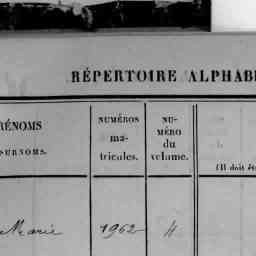 RÉPERTOIRE ALPHAB
RÉNOMS
SURNOMS.
NUMÉROS
ma-
tricules.
NU-
MÉRO
du
volume.
(Il doit êt
Marie 1962 4